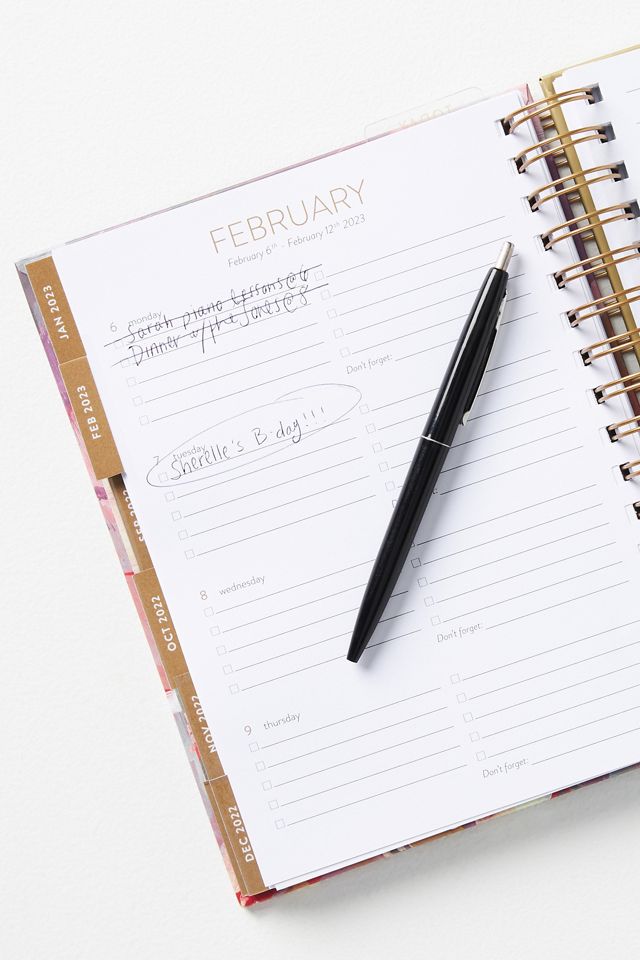 FEBRUARY
February 6th - February 12th 2023
6 monday
Sarah piano lessons @ 6
Dinner w/ the Jones @ 8
Don't forget:
7 tuesday
Sherelle's B-day!!!
8 wednesday
Don't forget:
9 thursday
Don't forget:
JAN 2023
FEB 2023
SEP 2022
OCT 2022
NOV 2022
DEC 2022